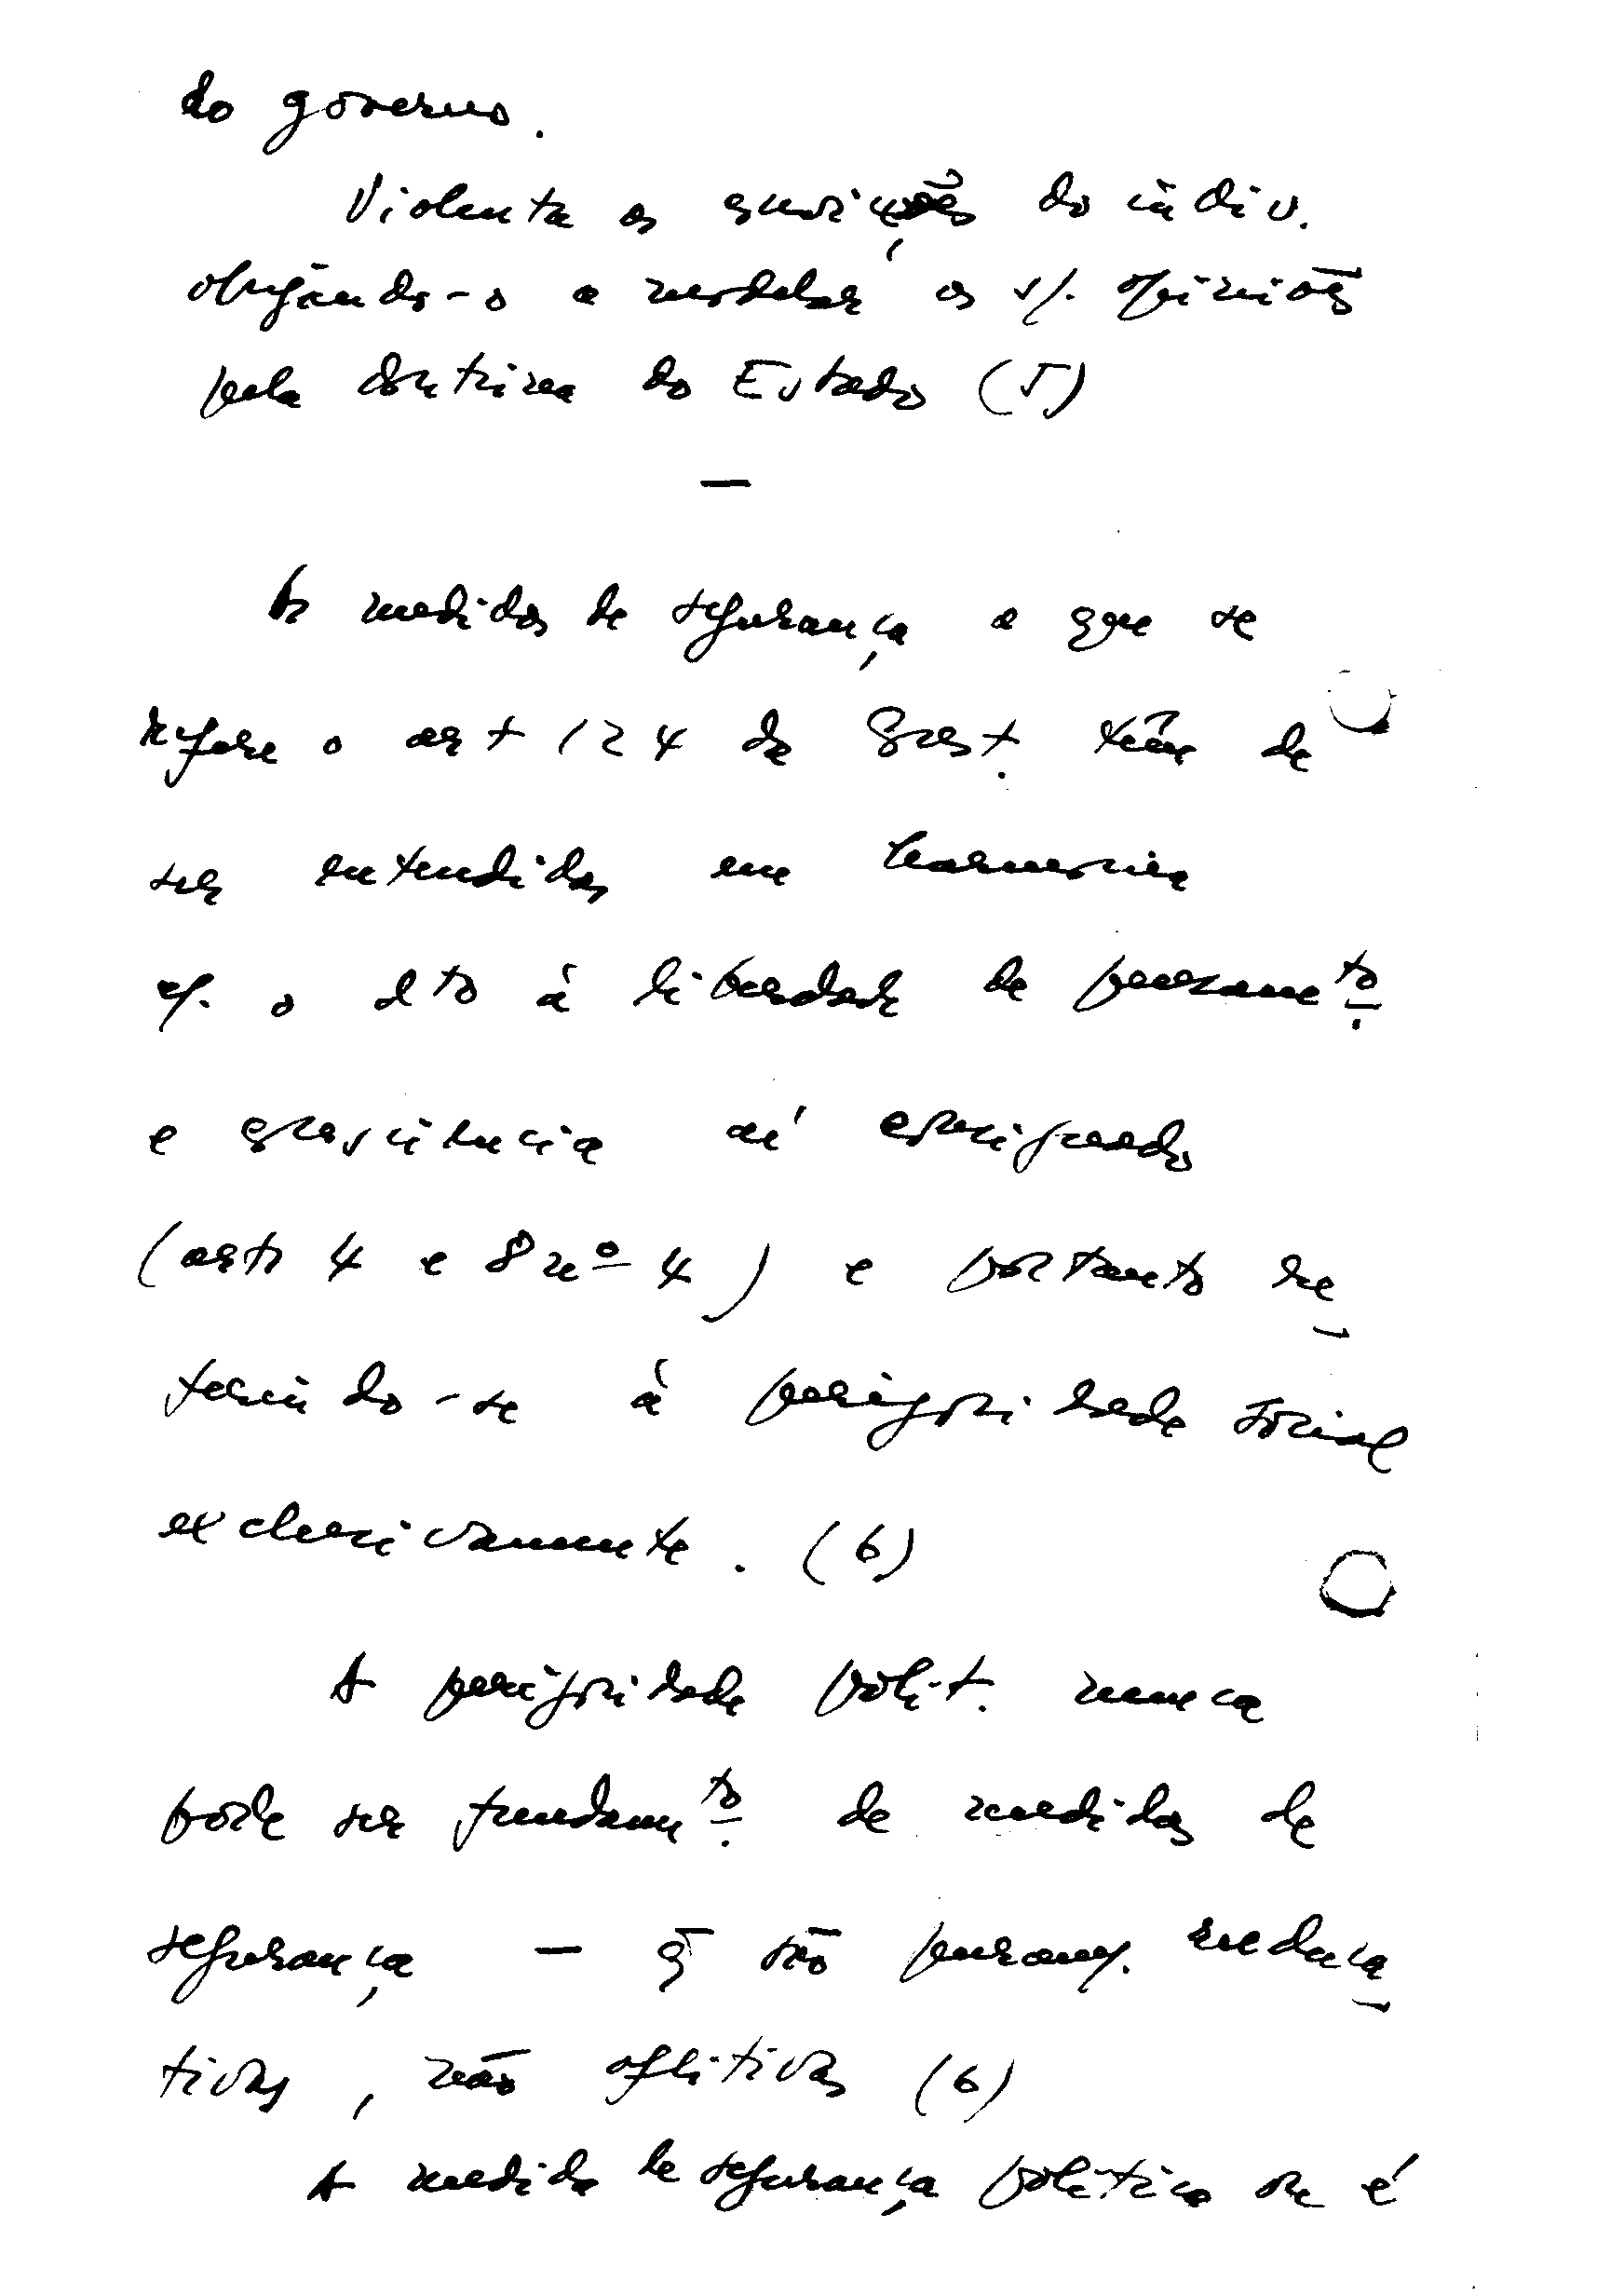 do governo.
Violenta as convicções do indiv.
obrigando-o a modelar as s/. opiniões
pela doutrina do Estado (5)
—
As medidas de segurança a que se
refere o art 124 da Const. têm de
ser entendidas em harmonia
c/. o dto à liberdade de pensamto.
e consciência aí especificado
(arts 4 e 8 nº 4) e portanto re
ferindo-se à perigosidade social
exclusivamente. (6)
A perigosidade polit. nunca
pode ser fundamto. de medidas de
segurança — q̃ são puram/. reeduca
tivas, não aflitivas (6)
A medida de segurança política ou é